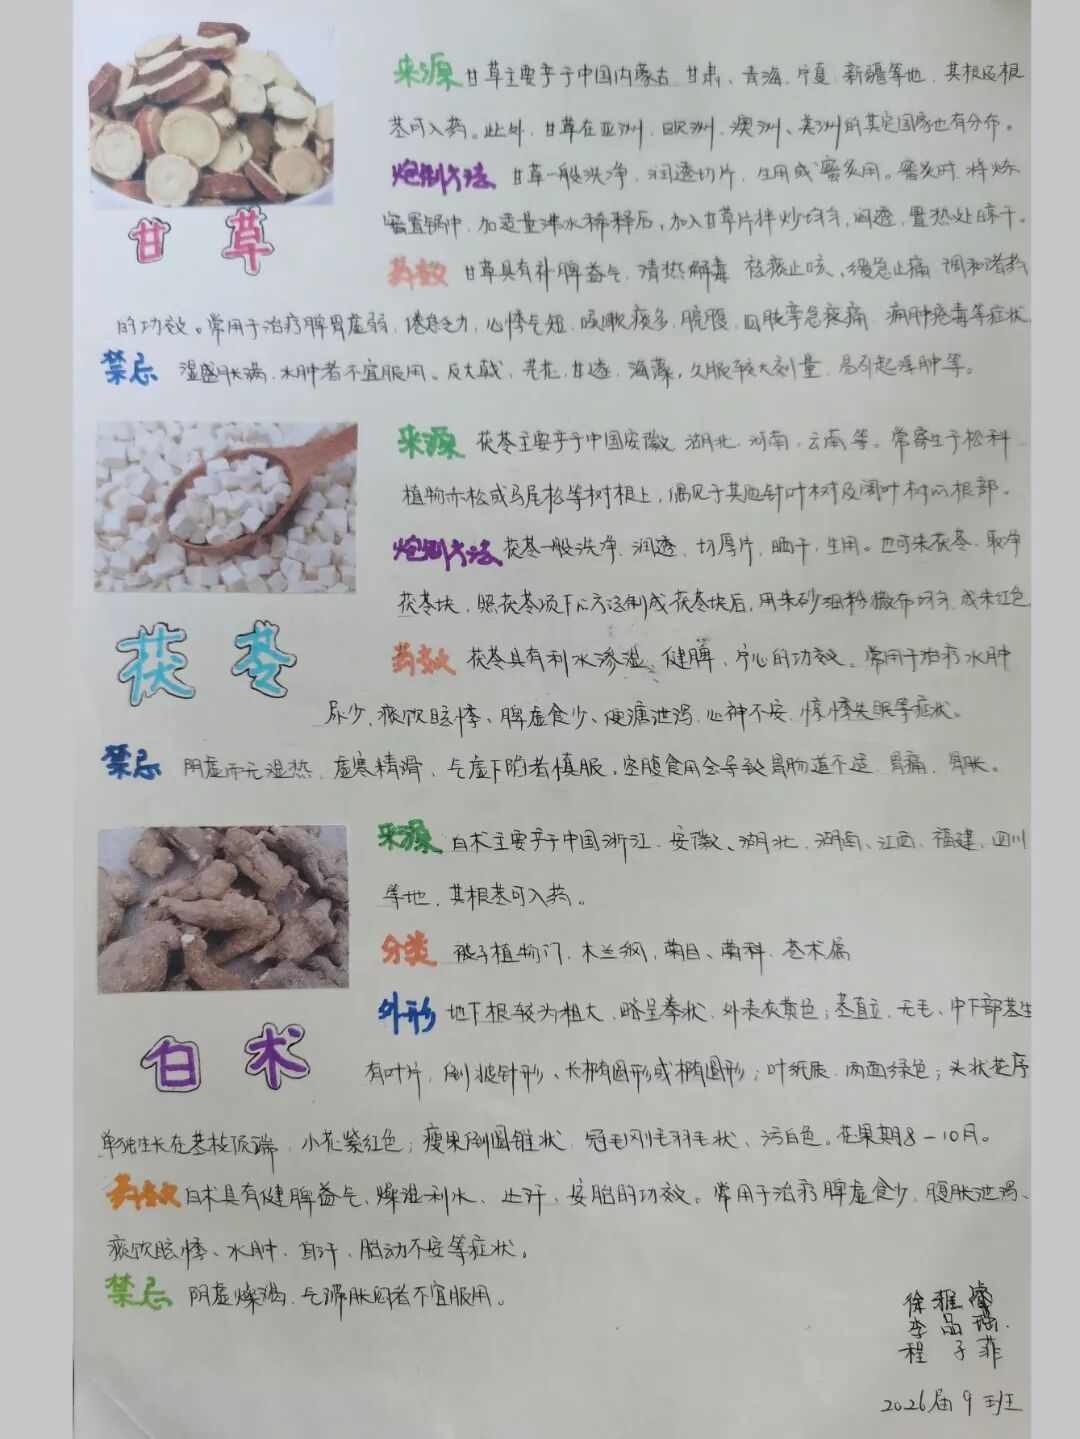 来源 甘草主要产于中国内蒙古、甘肃、青海、宁夏、新疆等地，其根及根
茎可入药。此外，甘草在亚洲、欧洲、澳洲、美洲的其它国家也有分布。
炮制方法 甘草一般洗净、润透切片，生用或蜜炙用。蜜炙时，将炼
蜜置锅中，加适量沸水稀释后，加入甘草片拌炒均匀，闷透，置热处晾干。
甘草
药效 甘草具有补脾益气、清热解毒、祛痰止咳、缓急止痛、调和诸药
的功效。常用于治疗脾胃虚弱，倦怠乏力，心悸气短，咳嗽痰多，脘腹、四肢挛急疼痛，痈肿疮毒等症状。
禁忌 湿盛胀满、水肿者不宜服用。反大戟、芫花、甘遂、海藻，久服较大剂量，易引起浮肿等。
来源 茯苓主要产于中国安徽、湖北、河南、云南等。常寄生于松科
植物赤松或马尾松等树根上，偶见于其他针叶树及阔叶树的根部。
炮制方法 茯苓一般洗净、润透、切厚片，晒干，生用。也可朱茯苓，取净
茯苓块，照茯苓项下的方法制成茯苓块后，用朱砂细粉撒布均匀，成朱红色
茯苓
药效 茯苓具有利水渗湿、健脾、宁心的功效。常用于治疗水肿
尿少、痰饮眩悸、脾虚食少、便溏泄泻、心神不安、惊悸失眠等症状。
禁忌 阴虚而无湿热、虚寒精滑、气虚下陷者慎服。空腹食用会导致胃肠道不适、胃痛、胃胀。
来源 白术主要产于中国浙江、安徽、湖北、湖南、江西、福建、四川
等地，其根茎可入药。
分类 被子植物门、木兰纲、菊目、菊科、苍术属
外形 地下根较为粗大，略呈拳状，外表灰黄色；茎直立，无毛，中下部茎生
有叶片，倒披针形、长椭圆形或椭圆形；叶纸质，两面绿色；头状花序
白术
单独生长在茎枝顶端，小花紫红色；瘦果倒圆锥状，冠毛刚毛羽毛状、污白色。花果期8-10月。
药效 白术具有健脾益气、燥湿利水、止汗、安胎的功效。常用于治疗脾虚食少，腹胀泄泻、
痰饮眩悸、水肿、自汗、胎动不安等症状。
禁忌 阴虚燥渴、气滞胀闷者不宜服用。
徐雅
李品瑶
程子菲
2026届9班